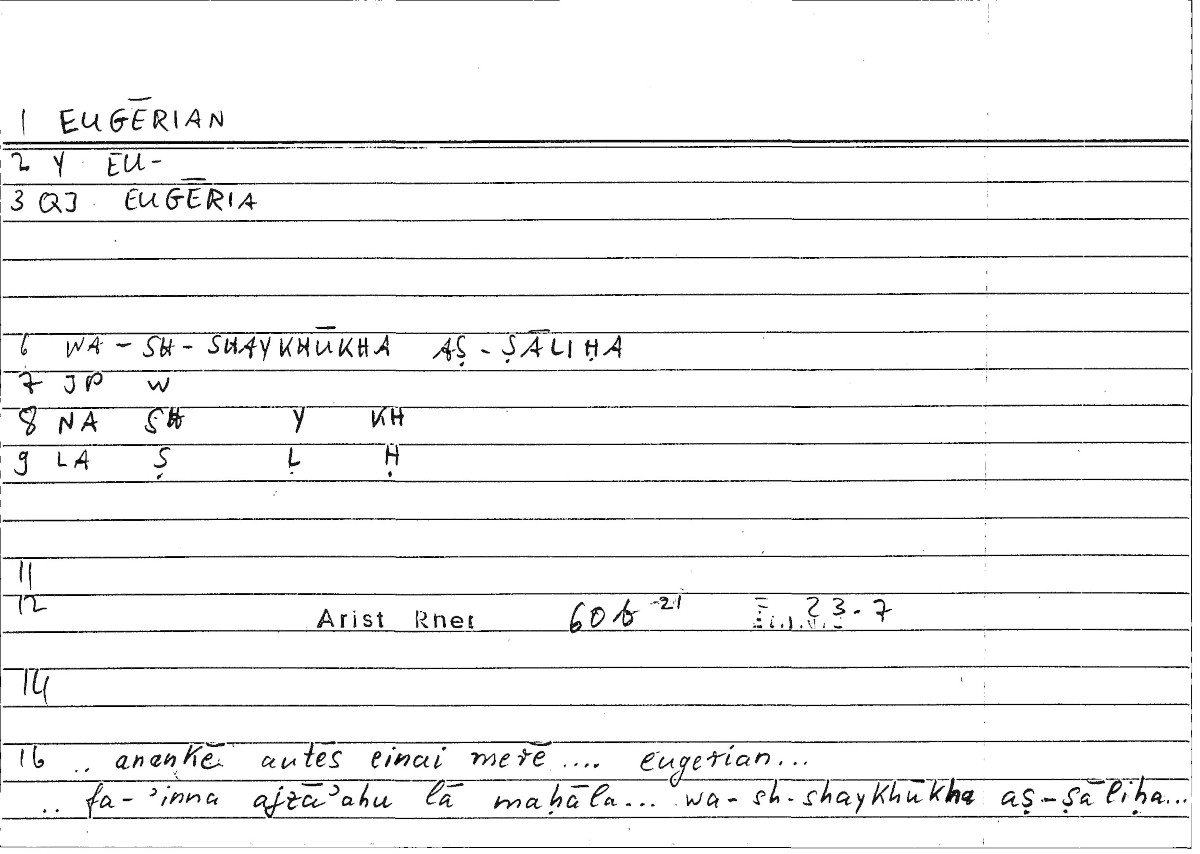 1 EUGĒRIAN
2 Y EU-
3 QJ EUGĒRIA
6 WA - SH - SHAYKHŪKHA AṢ - ṢĀLIḤA
7 JP W
8 NA SH Y KH
9 LA Ṣ L Ḥ
11
12 Arist Rhet 60b 21 23.7
14
16 .. anankē autēs einai merē .... eugerian...
.. fa-ʾinna ajzāʾahu lā maḥāla... wa-sh-shaykhūkha aṣ-ṣāliḥa...